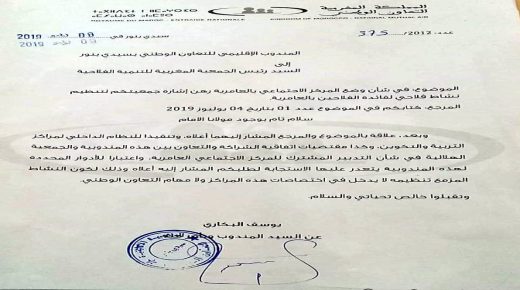 المملكة المغربية
التعاون الوطني
ROYAUME DU MAROC - ENTRAIDE NATIONALE
KINGDOM OF MOROCCO - NATIONAL MUTUAL AID
عدد: 375 /2012
سيدي بنور في 09 يوليوز 2019
المندوب الإقليمي للتعاون الوطني بسيدي بنور
إلى
السيد رئيس الجمعية المغربية للتنمية الفلاحية
الموضوع: في شأن وضع المركز الاجتماعي بالعامرية رهن إشارة جمعيتكم لتنظيم
نشاط فلاحي لفائدة الفلاحين بالعامرية.
المرجع: كتابكم في الموضوع عدد 01 بتاريخ 04 يوليوز 2019
سلام تام بوجود مولانا الامام
وبعد، علاقة بالموضوع والمرجع المشار إليهما أعلاه، وتنفيذا للنظام الداخلي لمراكز
التربية والتكوين، وكذا مقتضيات اتفاقية الشراكة والتعاون بين هذه المندوبية والجمعية
الهلالية في شأن التدبير المشترك للمركز الاجتماعي العامرية. واعتبارا للأدوار المحددة
لهذه المندوبية يتعذر عليها الاستجابة لطلبكم المشار إليه أعلاه وذلك لكون النشاط
المزمع تنظيمه لا يدخل في اختصاصات هذه المراكز ولا مهام التعاون الوطني
وتقبلوا خالص تحياتي والسلام.
يوسف البخاري
عن السيد المندوب